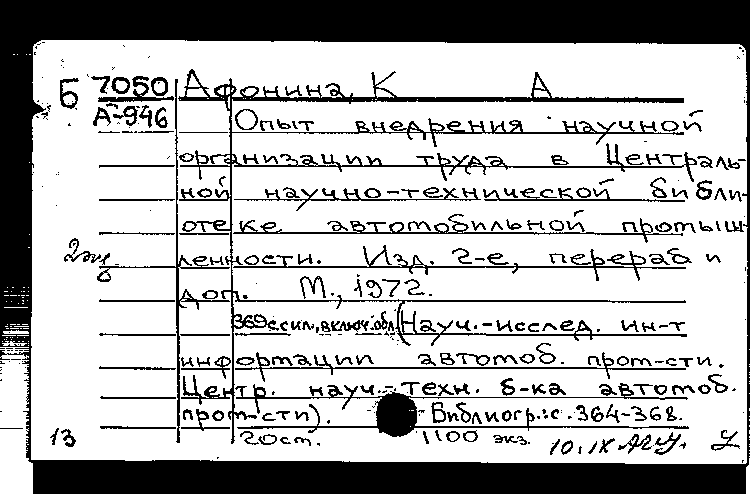 Б 7050 Афонина, К А
А-946 Опыт внедрения научной
организации труда в Централь-
ной научно-технической библи-
отеке автомобильной промыш-
2 экз
ленности. Изд. 2-е, перераб и
доп. М., 1972.
369 с. с ил., включ. обл. (Науч.-исслед. ин-т
информации автомоб. пром-сти.
Центр. науч.-техн. б-ка автомоб.
пром-сти). Библиогр.: с. 364-368.
13 20 ст. 1100 экз. 10.IX